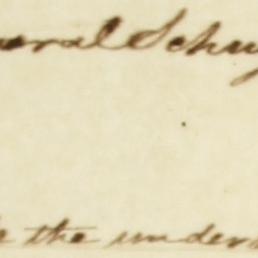 eral Schuy
the under